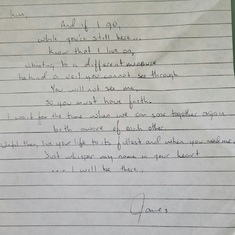 And if I go,
while you're still here...
Know that I live on,
vibrating to a different measure
behind a veil you cannot see through.
You will not see me,
so you must have faith.
I wait for the time when we can soar together again
both aware of each other.
Until then, live your life to its fullest and when you need me
Just whisper my name in your heart
I will be there.
James